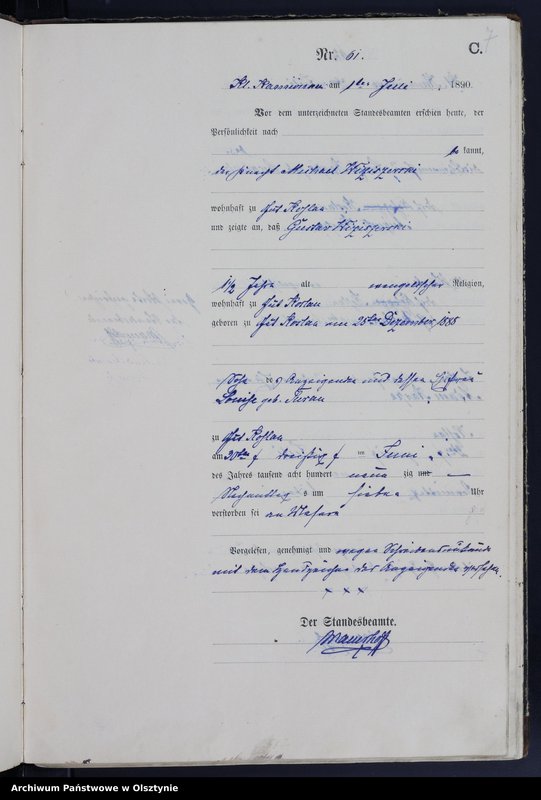 C.
7
Nr. 61.
Kl. Kamionau am 1ten Juli 1890.
Vor dem unterzeichneten Standesbeamten erschien heute, der
Persönlichkeit nach
be kannt,
der Knecht Michael
wohnhaft zu Gut Koslau
und zeigte an, daß Gustav
1 1/2 Jahre alt evangelischer Religion,
wohnhaft zu Gut Koslau
geboren zu Gut Koslau am 25ten Dezember 1888
Sohn des Anzeigenden und dessen Ehefrau
Louise geb.
zu Gut Koslau
am 30ten dreißig ten Juni
des Jahres tausend acht hundert neun zig und
Nachmittags um sieben Uhr
verstorben sei an Masern
Vorgelesen, genehmigt und wegen Schreibensunkunde
mit dem Handzeichen des Anzeigenden versehen.
× × ×
Der Standesbeamte.
Archiwum Państwowe w Olsztynie